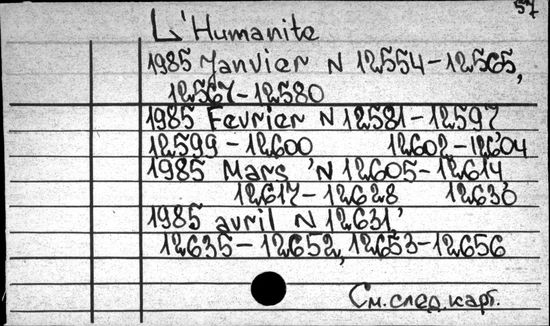 57
L'Humanite
1985 Janvier N 12554-12565,
12567-12580
1985 Fevrier N 12581-12597
12599-12600 12602-12604
1985 Mars N 12605-12614
12617-12628 12630
1985 avril N 12631,
12635-12652, 12653-12656
См. след. карт.